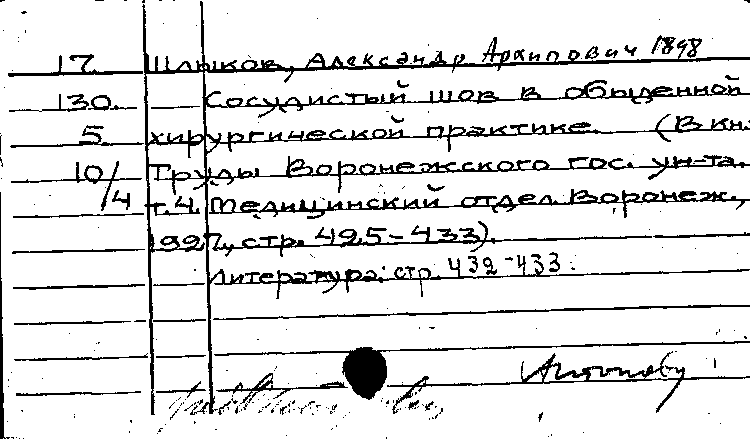 17. Шлыков, Александр Архипович 1898
130. Сосудистый шов в обыденной
5. хирургической практике. (В кн:
10/4 Труды Воронежского гос. ун-та.
т.4. Медицинский отдел. Воронеж.,
1927, стр. 425-433).
Литература: стр. 432-433.